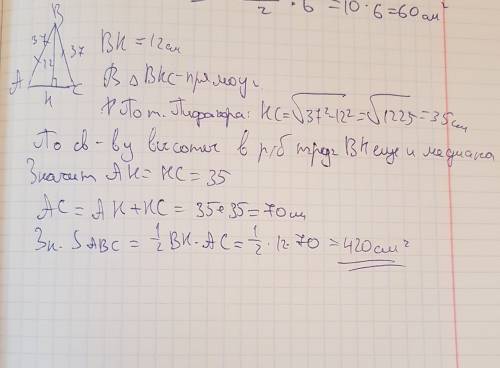 2 · 6 = 10 · 6 = 60 см²
B
37 37
12
A H C
BH = 12 см
В △ BHC - прямоуг
По т. Пифагора: HC = √37² - 12² = √1225 = 35 см
По св-ву высоты в р/б треуг BH еще и медиана
Значит AH = HC = 35
AC = AH + HC = 35 + 35 = 70 см
Зн. S ABC = 1/2 BH · AC = 1/2 · 12 · 70 = 420 см²